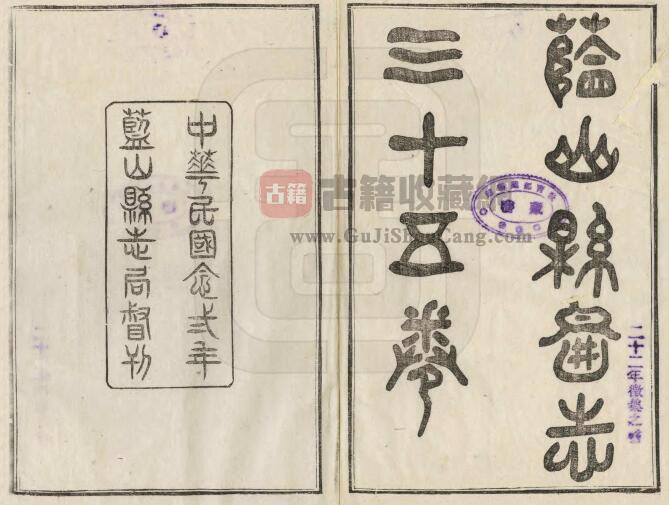 藍山縣圖志
三十五卷
中華民國念弍年
藍山縣志局督刊
藏書
二十二年徵集之書
古籍
古籍收藏網
www.GuJiShouCang.com